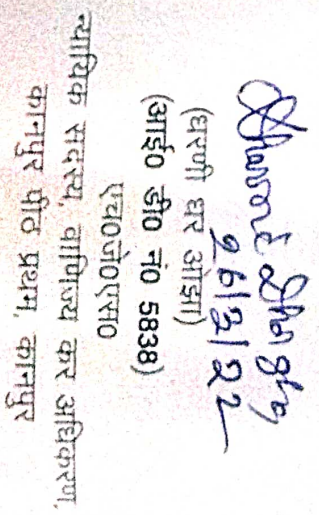 26/2/22
(धरणी धर ओझा)
(आई० डी० नं० 5838)
एच०जे०एस०
न्यायिक सदस्य, वाणिज्य कर अधिकरण,
कानपुर पीठ प्रथम, कानपुर